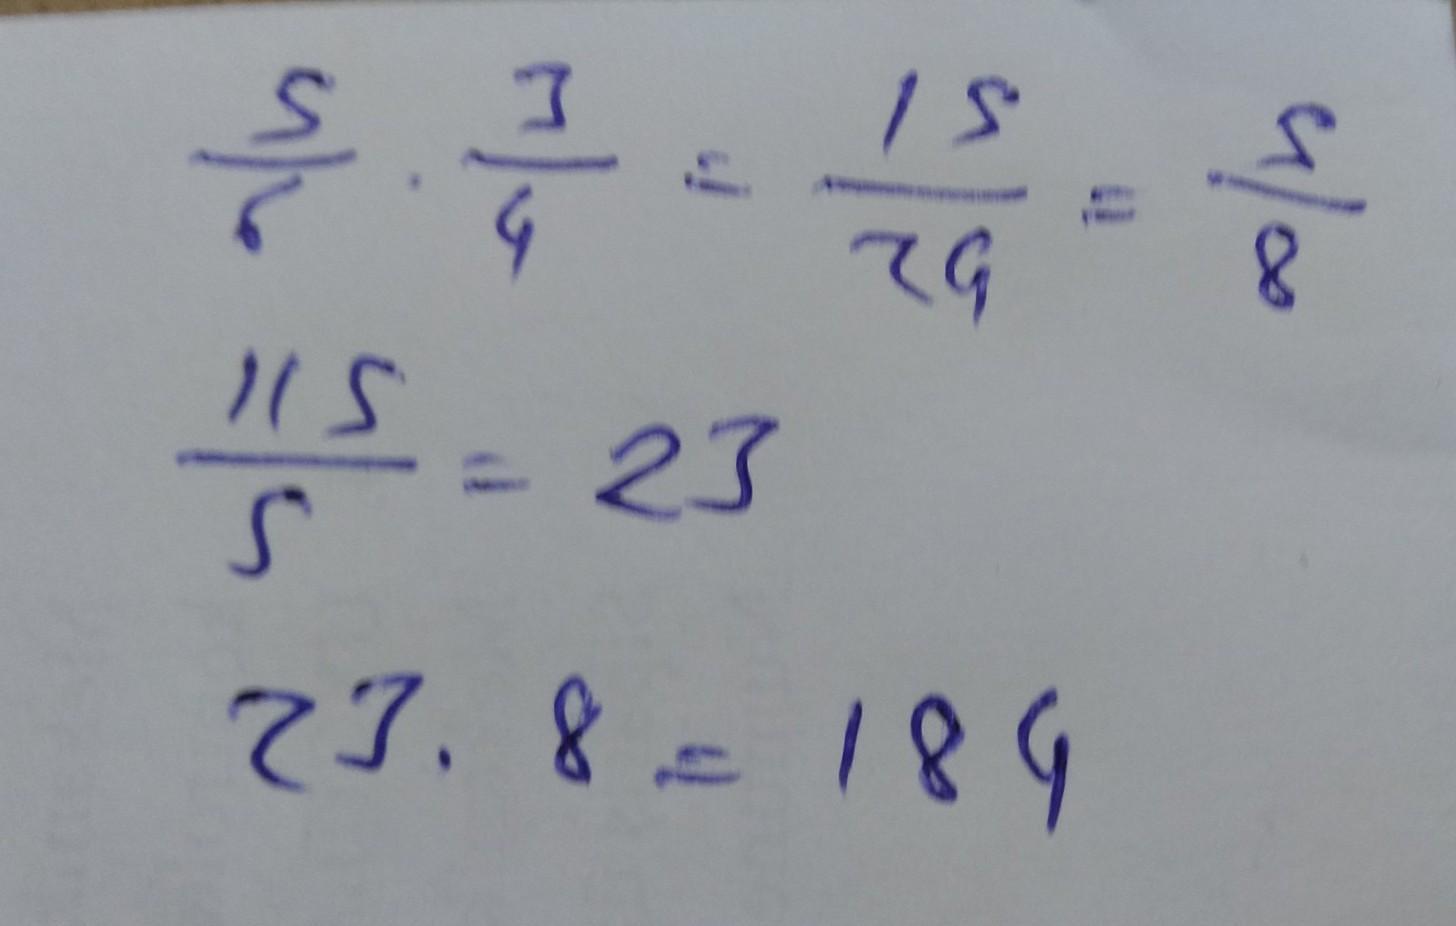 5/6 · 3/4 = 15/24 = 5/8
115/5 = 23
23 · 8 = 184